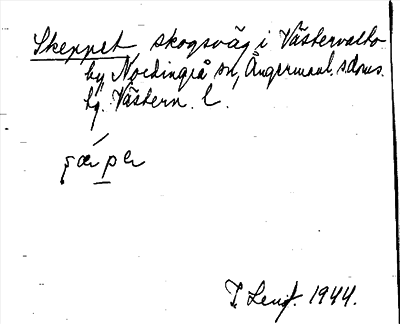 Skeppet, skogsväg i Västervalto
by Nordingrå sn, Ångermanl. s. dpus.
tg. Västern. l.
ʂæ´per
I. Lenf. 1944.